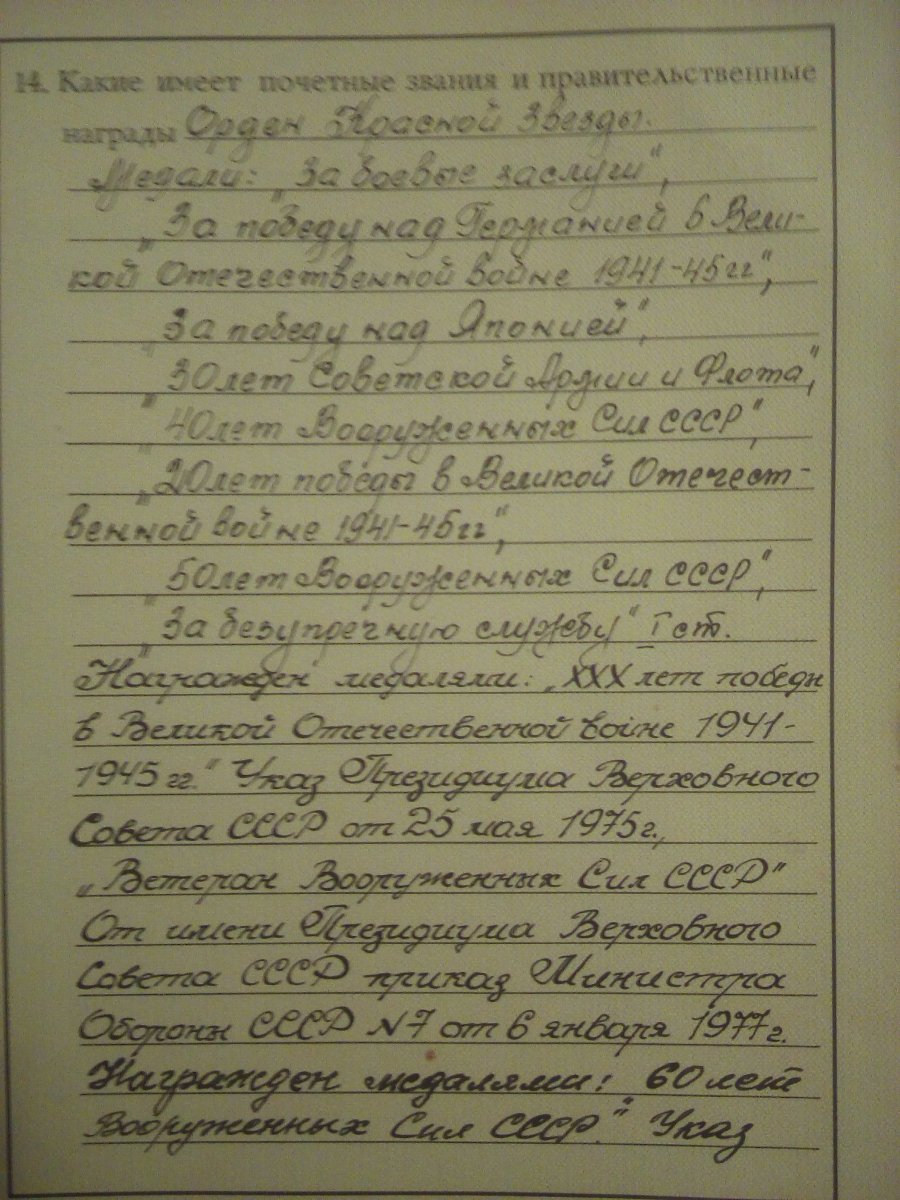 14. Какие имеет почетные звания и правительственные
награды Орден Красной Звезды.
Медали: „За боевые заслуги",
„За победу над Германией в Вели-
кой Отечественной войне 1941-45гг",
„За победу над Японией",
„30 лет Советской Армии и Флота",
„40 лет Вооруженных Сил СССР",
„20 лет победы в Великой Отечест-
венной войне 1941-45гг",
„50 лет Вооруженных Сил СССР",
„За безупречную службу" I ст.
Награжден медалями: „XXX лет победы
в Великой Отечественной войне 1941-
1945 гг." Указ Президиума Верховного
Совета СССР от 25 мая 1975г.,
„Ветеран Вооруженных Сил СССР"
От имени Президиума Верховного
Совета СССР приказ Министра
Обороны СССР N7 от 6 января 1977г.
Награжден медалями: „60 лет
Вооруженных Сил СССР." Указ